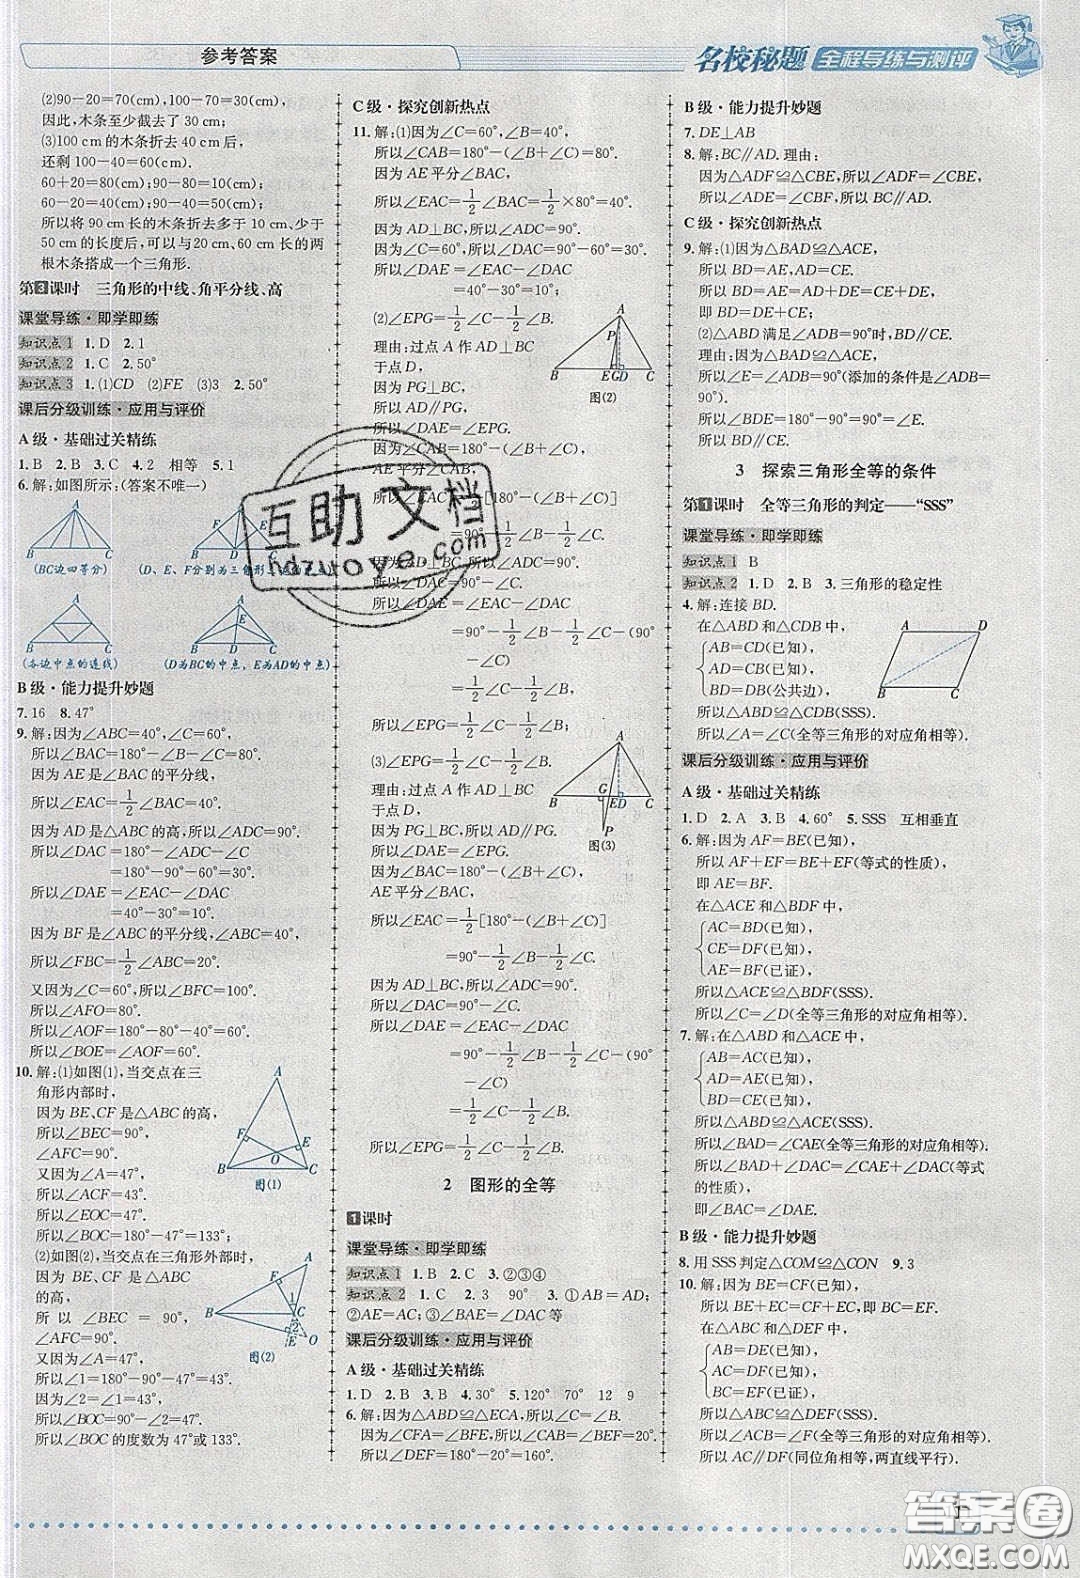 参考答案
名校秘题 全程导练与测评
(2)90－20=70(cm),100－70=30(cm),
因此,木条至少截去了 30 cm;
(3)100 cm 的木条折去 40 cm 后,
还剩 100－40=60(cm);
60+20=80(cm);90－80=10(cm);
60－20=40(cm);90－40=50(cm);
所以将 90 cm 长的木条折去多于 10 cm、少于
50 cm 的长度后,可以与20 cm、60 cm 长的两
根木条搭成一个三角形.
第3课时 三角形的中线、角平分线、高
课堂导练·即学即练
知识点1 1. D 2. 1
知识点2 1. C 2. 50°
知识点3 1. (1)CD (2)FE (3)3 2. 50°
课后分级训练·应用与评价
A 级·基础过关精练
1. B 2. B 3. C 4. 2 相等 5. 1
6. 解:如图所示:(答案不唯一)
A A
B C B D C
(BC边四等分) (D、E、F分别为三角形
A A
E
B C B D C
(各边中点的连线) (D为BC的中点,E为AD的中点)
B 级·能力提升妙题
7. 16 8. 47°
9. 解:因为∠ABC=40°,∠C=60°,
所以∠BAC=180°－∠B－∠C=80°.
因为 AE 是∠BAC 的平分线,
所以∠EAC=1/2∠BAC=40°.
因为 AD 是△ABC 的高,所以∠ADC=90°.
所以∠DAC=180°－∠ADC－∠C
=180°－90°－60°=30°.
所以∠DAE=∠EAC－∠DAC
=40°－30°=10°.
因为 BF 是∠ABC 的平分线,∠ABC=40°,
所以∠FBC=1/2∠ABC=20°.
又因为∠C=60°,所以∠BFC=100°.
所以∠AFO=80°.
所以∠AOF=180°－80°－40°=60°.
所以∠BOE=∠AOF=60°.
10. 解:(1)如图(1),当交点在三
角形内部时,
因为 BE、CF 是△ABC 的高,
所以∠BEC=90°,
∠AFC=90°.
又因为∠A=47°,
所以∠ACF=43°.
所以∠EOC=47°.
所以∠BOC=180°－47°=133°.
A
F E
O
B C
图(1)
(2)如图(2),当交点在三角形外部时,
因为 BE、CF 是△ABC
的高,
所以∠BEC=90°,
∠AFC=90°.
又因为∠A=47°,
所以∠1=180°－90°－47°=43°.
所以∠2=43°.
所以∠BOC=90°－∠2=47°.
所以∠BOC 的度数为 47°或 133°.
A
F
B 1 C
2
E O
图(2)
C 级·探究创新热点
11. 解:(1)因为∠C=60°,∠B=40°,
所以∠CAB=180°－(∠B+∠C)=80°.
因为 AE 平分∠BAC,
所以∠EAC=1/2∠BAC=1/2×80°=40°.
因为 AD⊥BC,所以∠ADC=90°.
因为∠C=60°,所以∠DAC=90°－60°=30°.
所以∠DAE=∠EAC－∠DAC
=40°－30°=10°.
(2)∠EPG=1/2∠C－1/2∠B.
理由:过点 A 作 AD⊥BC
于点 D,
因为 PG⊥BC,
所以 AD∥PG,
所以∠DAE=∠EPG.
A
P
B EGD C
图(2)
因为∠CAB=180°－(∠B+∠C),
AE 平分∠CAB,
[180°－(∠B+∠C)]
=90°－1/2∠B－1/2∠C.
因为 AD⊥BC,所以∠ADC=90°.
∠C.
所以∠DAE=∠EAC－∠DAC
=90°－1/2∠B－1/2∠C－(90°
－∠C)
=1/2∠C－1/2∠B.
所以∠EPG=1/2∠C－1/2∠B.
(3)∠EPG=1/2∠C－1/2∠B.
理由:过点 A 作 AD⊥BC
于点 D,
因为 PG⊥BC,AD⊥BC,
所以 PG∥AD,
所以∠DAE=∠EPG.
A
G
B ED C
P
图(3)
因为∠BAC=180°－(∠B+∠C),
AE 平分∠BAC,
所以∠EAC=1/2[180°－(∠B+∠C)]
=90°－1/2∠B－1/2∠C.
因为 AD⊥BC,所以∠ADC=90°.
所以∠DAC=90°－∠C.
所以∠DAE=∠EAC－∠DAC
=90°－1/2∠B－1/2∠C－(90°
－∠C)
=1/2∠C－1/2∠B.
所以∠EPG=1/2∠C－1/2∠B.
2 图形的全等
1课时
课堂导练·即学即练
知识点1 1. B 2. C 3. ②③④
知识点2 1. C 2. 3 90° 3. ①AB=AD;
②AE=AC;③∠BAE=∠DAC 等
课后分级训练·应用与评价
A 级·基础过关精练
1. D 2. B 3. B 4. 90° 5. 120° 70° 12 9
6. 解:因为△ABF≌△ECA,所以∠C=∠B.
因为∠CFA=∠BFE,所以∠C=∠BEF=20°.
所以∠DEF=180°－20°=160°.
B 级·能力提升妙题
7. DE⊥AB
8. 解:BC∥AD. 理由:
因为△ADF≌△CBE,所以∠ADF=∠CBE,
所以 BC∥AD.
C 级·探究创新热点
9. 解:(1)因为△BAD≌△ACE,
所以 BD=AE,AD=CE.
所以 BD=AE=AD+DE=CE+DE,
即 BD=CE+DE;
(2)△ABD 满足∠ADB=90°时,BD∥CE.
理由:因为△BAD≌△ACE,
所以∠E=∠ADB=90°(添加的条件是∠ADB=
90°).
所以∠BDE=180°－90°=90°=∠E.
所以 BD∥CE.
3 探索三角形全等的条件
第1课时 全等三角形的判定——“SSS”
课堂导练·即学即练
知识点1 B
知识点2 1. D 2. B 3. 三角形的稳定性
4. 解:连接 BD.
在△ABD 和△CDB 中,
AB=CD(已知),
AD=CB(已知),
BD=DB(公共边),
所以△ABD≌△CDB(SSS).
所以∠A=∠C(全等三角形的对应角相等).
A D
B C
课后分级训练·应用与评价
A 级·基础过关精练
1. D 2. A 3. B 4. 60° 5. SSS 互相垂直
6. 解:因为 AF=BE(已知),
所以 AF+EF=BE+EF(等式的性质),
即 AE=BF.
在△ACE 和△BDF 中,
AC=BD(已知),
CE=DF(已知),
AE=BF(已证),
所以△ACE≌△BDF(SSS).
所以∠C=∠D(全等三角形的对应角相等).
7. 解:在△ABD 和△ACE 中,
AB=AC(已知),
AD=AE(已知),
BD=CE(已知),
所以△ABD≌△ACE(SSS).
所以∠BAD=∠CAE(全等三角形的对应角相等).
所以∠BAD+∠DAC=∠CAE+∠DAC(等式
的性质),
即∠BAC=∠DAE.
B 级·能力提升妙题
8. 用 SSS 判定△COM≌△CON 9. 3
10. 解:因为 BE=CF(已知),
所以 BE+EC=CF+EC,即 BC=EF.
在△ABC 和△DEF 中,
AB=DE(已知),
AC=DF(已知),
BC=EF(已证),
所以△ABC≌△DEF(SSS).
所以∠ACB=∠F(全等三角形的对应角相等).
所以 AC∥DF(同位角相等,两直线平行).
互助文档
hdzuoye.com
答案圈
MXQE.COM